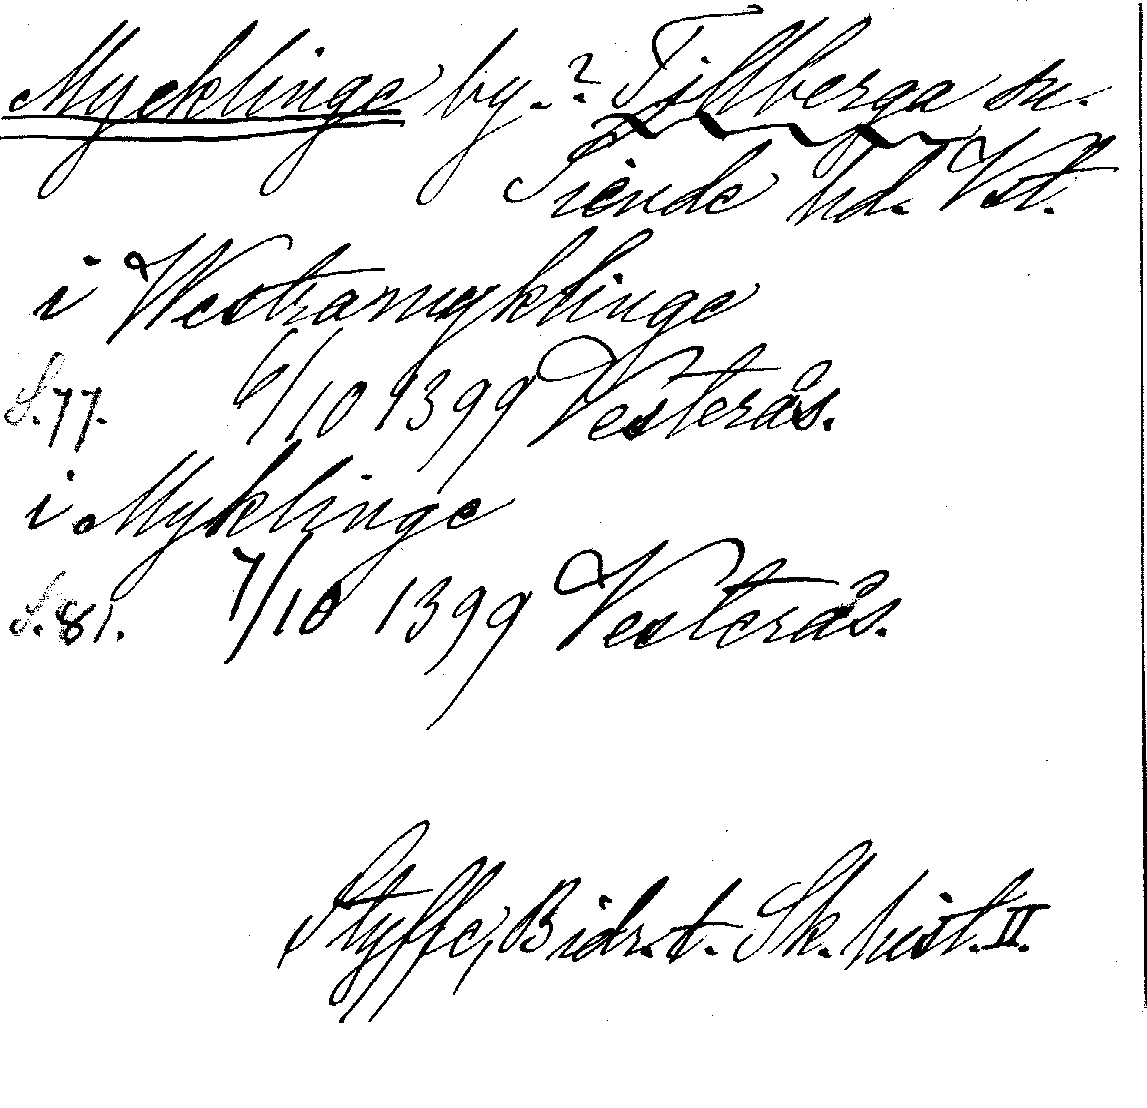 Mycklinge by.? Tillberga sn.
Siende hd. Vst.
i Westramyklinge
S.77. 6/10 1399 Vesterås.
i Myklinge
S.81. 7/10 1399 Vesterås.
Styffe, Bidr. t. Sk. hist. II.